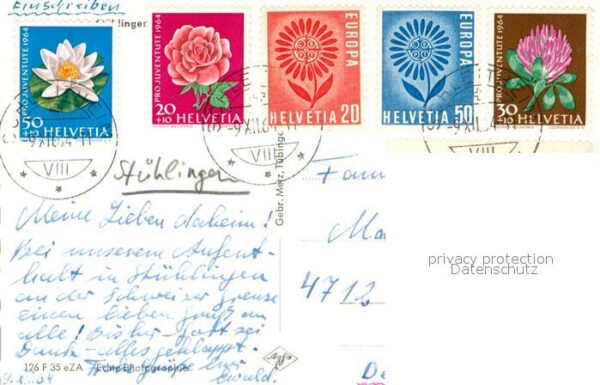 Einschreiben
PRO JUVENTUTE 1964
50
+10 HELVETIA
PRO JUVENTUTE 1964
20
+10 HELVETIA
EUROPA
HELVETIA 20
EUROPA
HELVETIA 50
PRO JUVENTUTE 1964
30
+10 HELVETIA
-9.XII.64-11
VIII
-9.XII.64-11
VIII
-9.XII.64-11
VIII
Stühlingen
Gebr. Metz, Tübingen
Meine Lieben daheim!
Bei unserem Aufent-
halt in Stühlingen
an der Schweizer Grenze
einen lieben Gruß an
alle! Bisher - Gott sei
Dank - alles geklappt.
Ewald.
126 F 35 eZA Echte Photographie
Agfa
Fam
Ma
4712
privacy protection
Datenschutz